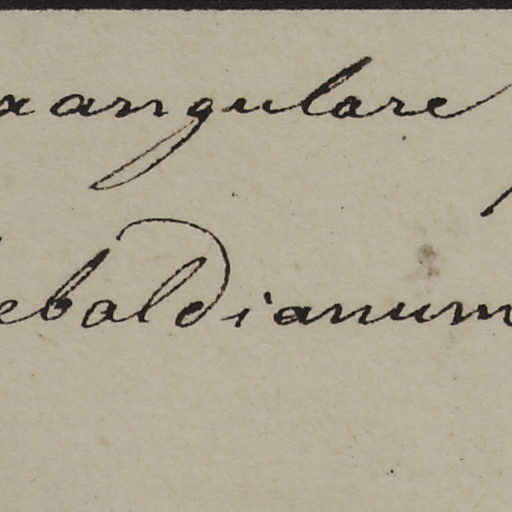 xangulare
ebaldianum